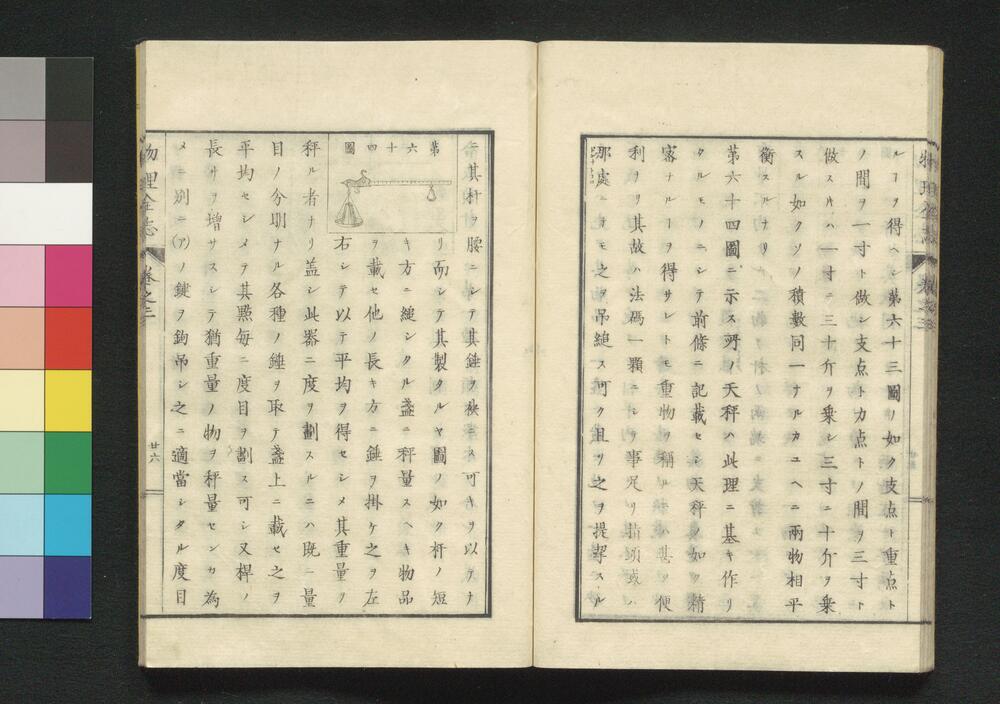 物理全志 卷之三
ルヿヲ得ヘシ第六十三圖ノ如ク支点ト重点ト
ノ間ヲ一寸ト做シ支点ト力点トノ間ヲ三寸ト
做スキハ一寸ニ三十斤ヲ乗シ三寸ニ十斤ヲ乗
スル如クソノ積數同一ナルカユヘニ兩物相平
衡スルナリ
第六十四圖ニ示ス所ノ天秤ハ此理ニ基キ作リ
タルモノニシテ前條ニ記載セシ天秤ノ如ク精
密ナルヿヲ得サレトモ重物ヲ稱ルニハ甚タ便
利ナリ其故ハ法碼一顆ニシテ事足リ指頭或ハ
那處ニテモ之ヲ吊縋ス可ク且ツ之ヲ提挈スル
ニ其杆ヲ腰ニシテ其錘ヲ袂ニス可キヲ以テナ
第六十四圖
リ而シテ其製タルヤ圖ノ如ク杆ノ短
キ方ニ縋シタル盞ニ秤量スヘキ物品
ヲ載セ他ノ長キ方ニ錘ヲ掛ケ之ヲ左
右シテ以テ平均ヲ得セシメ其重量ヲ
秤ル者ナリ蓋シ此器ニ度ヲ劃スルニハ既ニ量
目ノ分明ナル各種ノ錘ヲ取テ盞上ニ載セ之ヲ
平均セシメテ其點毎ニ度目ヲ劃ス可シ又桿ノ
長サヲ増サスシテ猶重量ノ物ヲ秤量センカ為
メニ別ニ(ア)ノ鍵ヲ鉤吊シ之ニ適當シタル度目
物理全志 卷之三 廿六